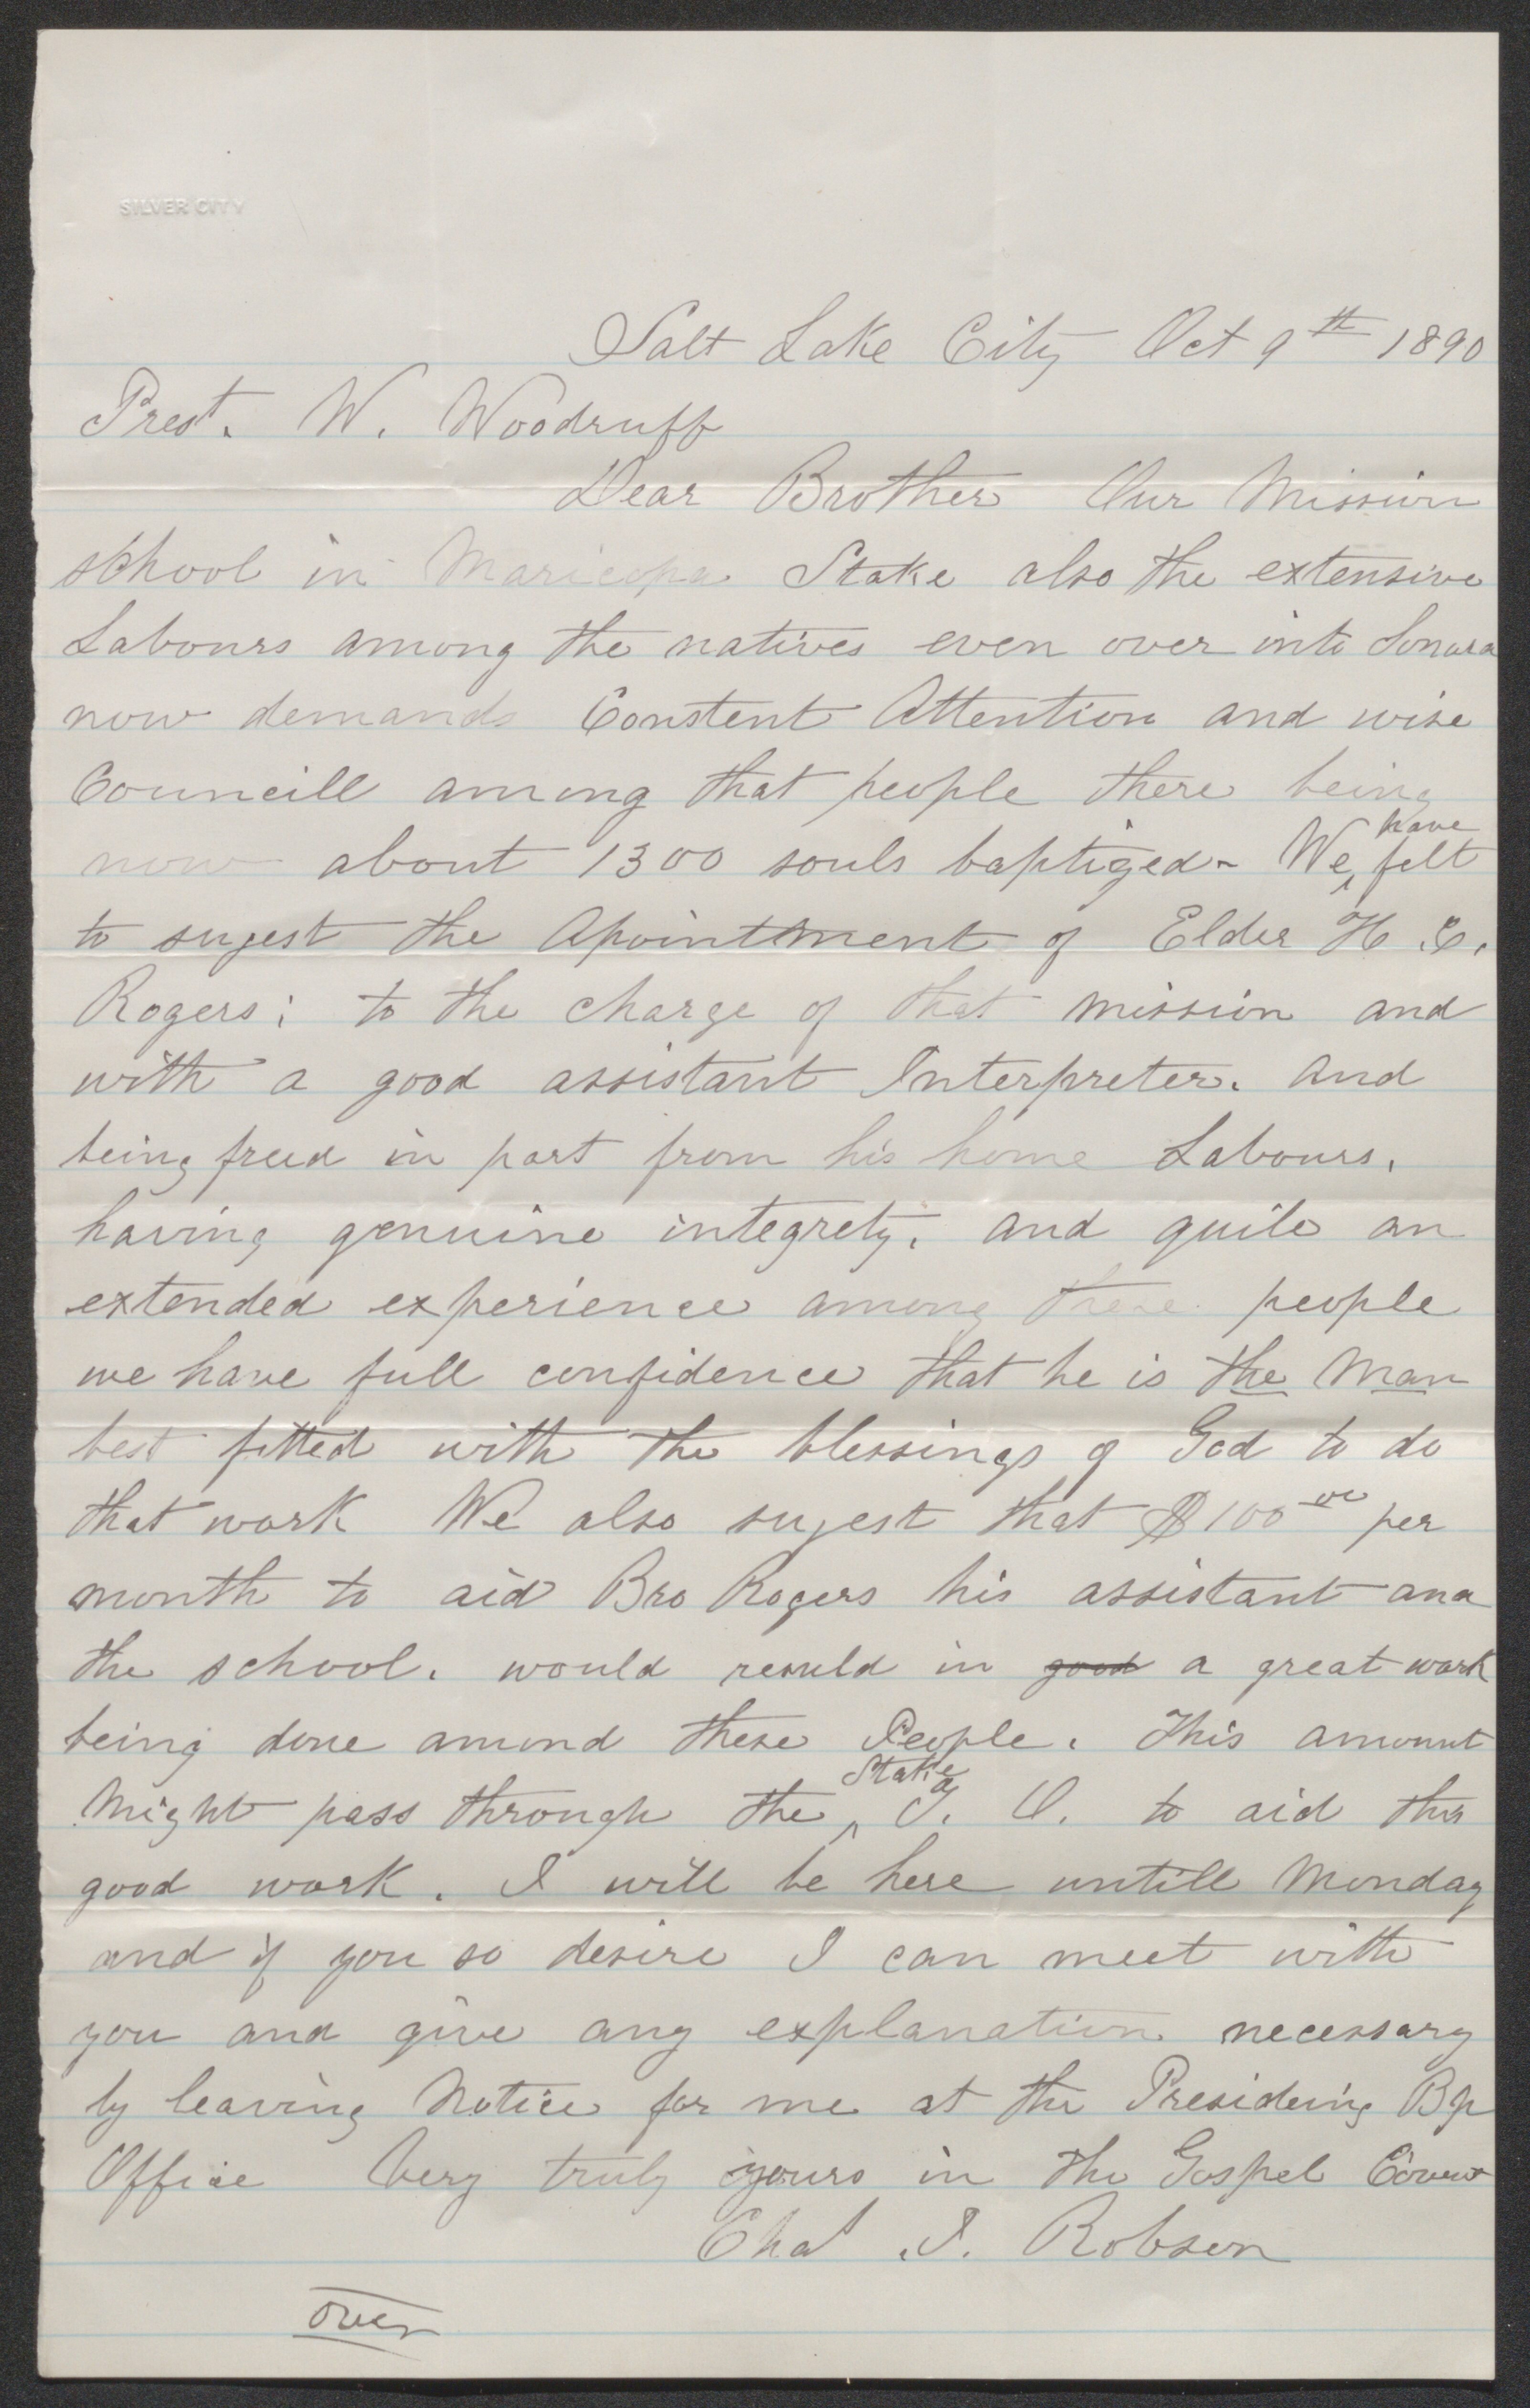 SILVER CITY
Salt Lake City Oct 9th 1890
Prest. W. Woodruff
Dear Brother Our Mission
school in Maricopa Stake also the extensive
Labours among the natives even over into Sonora
now demands Constent Attention and wise
Councill among that people there being
now about 1300 souls baptized - We have felt
to sujest the Apointment of Elder H. C.
Rogers; to the charge of that mission and
with a good assistant Interpreter. and
being freed in part from his home Labours.
having genuine integrety. and quite an
extended experience among these people
we have full confidence that he is the Man
best fitted with the blessings of God to do
that work We also sujest that $100 00 per
month to aid Bro Rogers his assistant and
the school. would resuld in good a great work
being done amond these People. This amount
Might pass through the Stake T. O. to aid this
good work. I will be here untill Monday
and if you so desire I can meet with
you and give any explanation necessary
by leaving Notice for me at the Presideing Bp
Office Very truly yours in the Gospel
Chas. I. Robson
over